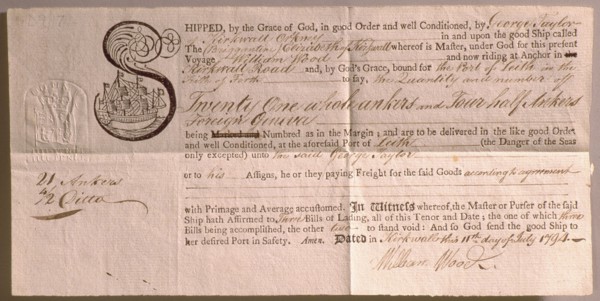 SHIPPED, by the Grace of God, in good Order and well Conditioned, by George Taylor
Kirkwall Orkney in and upon the good Ship called
The Elizabeth of Kirkwall whereof is Master, under God for this present
Voyage William Wood and now riding at Anchor in the
Kirkwall Road and, by God's Grace, bound for the Port of Leith in the
Firth of Forth to say, the Quantity and number of
Twenty One whole ankers and Four half Ankers
Foreign Geneva
being Marked and Numbred as in the Margin; and are to be delivered in the like good Order
and well Conditioned, at the aforesaid Port of Leith (the Danger of the Seas
only excepted) unto the said George Taylor
or to his Assigns, he or they paying Freight for the said Goods according to agreement
21 Ankers
4/2 Ditto
with Primage and Average accustomed. In Witness whereof, the Master or Purser of the said
Ship hath Affirmed to Three Bills of Lading, all of this Tenor and Date; the one of which three
Bills being accomplished, the other two to stand void: And so God send the good Ship to
her desired Port in Safety. Amen. Dated in Kirkwall this 11th day of July 1794
William Wood